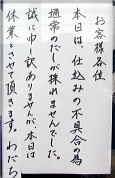 お客様各位
本日は、仕込みの不具合の為
通常のだしが採れませんでした。
誠に申し訳ありませんが、本日は
休業とさせて頂きます。わだち